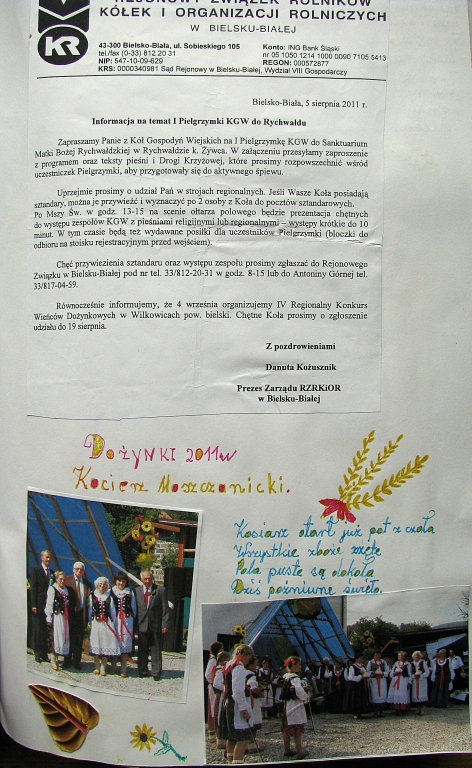 REJONOWY ZWIĄZEK ROLNIKÓW
KÓŁEK I ORGANIZACJI ROLNICZYCH
W BIELSKU-BIAŁEJ
KR
43-300 Bielsko-Biała, ul. Sobieskiego 105
tel./fax (0-33) 812 20 31
NIP: 547-10-09-629
KRS: 0000340981 Sąd Rejonowy w Bielsku-Białej, Wydział VIII Gospodarczy
Konto: ING Bank Śląski
nr 05 1050 1214 1000 0090 7105 5413
REGON: 000572877
Bielsko-Biała, 5 sierpnia 2011 r.
Informacja na temat I Pielgrzymki KGW do Rychwałdu
Zapraszamy Panie z Kół Gospodyń Wiejskich na I Pielgrzymkę KGW do Sanktuarium
Matki Bożej Rychwałdzkiej w Rychwałdzie k. Żywca. W załączeniu przesyłamy zaproszenie
z programem oraz teksty pieśni i Drogi Krzyżowej, które prosimy rozpowszechnić wśród
uczestniczek Pielgrzymki, aby przygotowały się do aktywnego śpiewu.
Uprzejmie prosimy o udział Pań w strojach regionalnych. Jeśli Wasze Koła posiadają
sztandary, można je przywieźć i wyznaczyć po 2 osoby z Koła do pocztów sztandarowych.
Po Mszy Św. w godz. 13-15 na scenie ołtarza polowego będzie prezentacja chętnych
do występu zespołów KGW z pieśniami religijnymi lub regionalnymi – występy krótkie do 10
minut. W tym czasie będą też wydawane posiłki dla uczestników Pielgrzymki (bloczki do
odbioru na stoisku rejestracyjnym przed wejściem).
Chęć przywiezienia sztandaru oraz występu zespołu prosimy zgłaszać do Rejonowego
Związku w Bielsku-Białej pod nr tel. 33/812-20-31 w godz. 8-15 lub do Antoniny Górnej tel.
33/817-04-59.
Równocześnie informujemy, że 4 września organizujemy IV Regionalny Konkurs
Wieńców Dożynkowych w Wilkowicach pow. bielski. Chętne Koła prosimy o zgłoszenie
udziału do 19 sierpnia.
Z pozdrowieniami
Danuta Kożusznik
Prezes Zarządu RZRKiOR
w Bielsku-Białej
DOŻYNKI 2011 w
Kocierz Moszczanicki.
Kosiarz otarł już pot z czoła
Wszystkie zboże zżęte
Pola puste są dokoła
Dziś pożniwne święto.